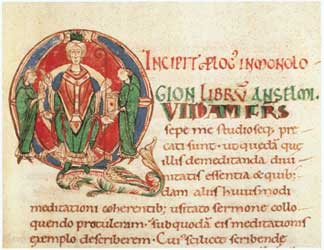 INCIPIT PLOG' IN MONOLO
GION LIBRV ANSELMI.
QVIDAM FRS
sepe me studioseq; pre
cati sunt. ut quedā que
illis de meditanda divi
nitatis essentia & quib;
dam aliis huiusmodi
meditationi coherentib; usitato sermone collo
quendo protuleram. sub quodā eis meditationis
exemplo describerem. Cuius scilicet scribende